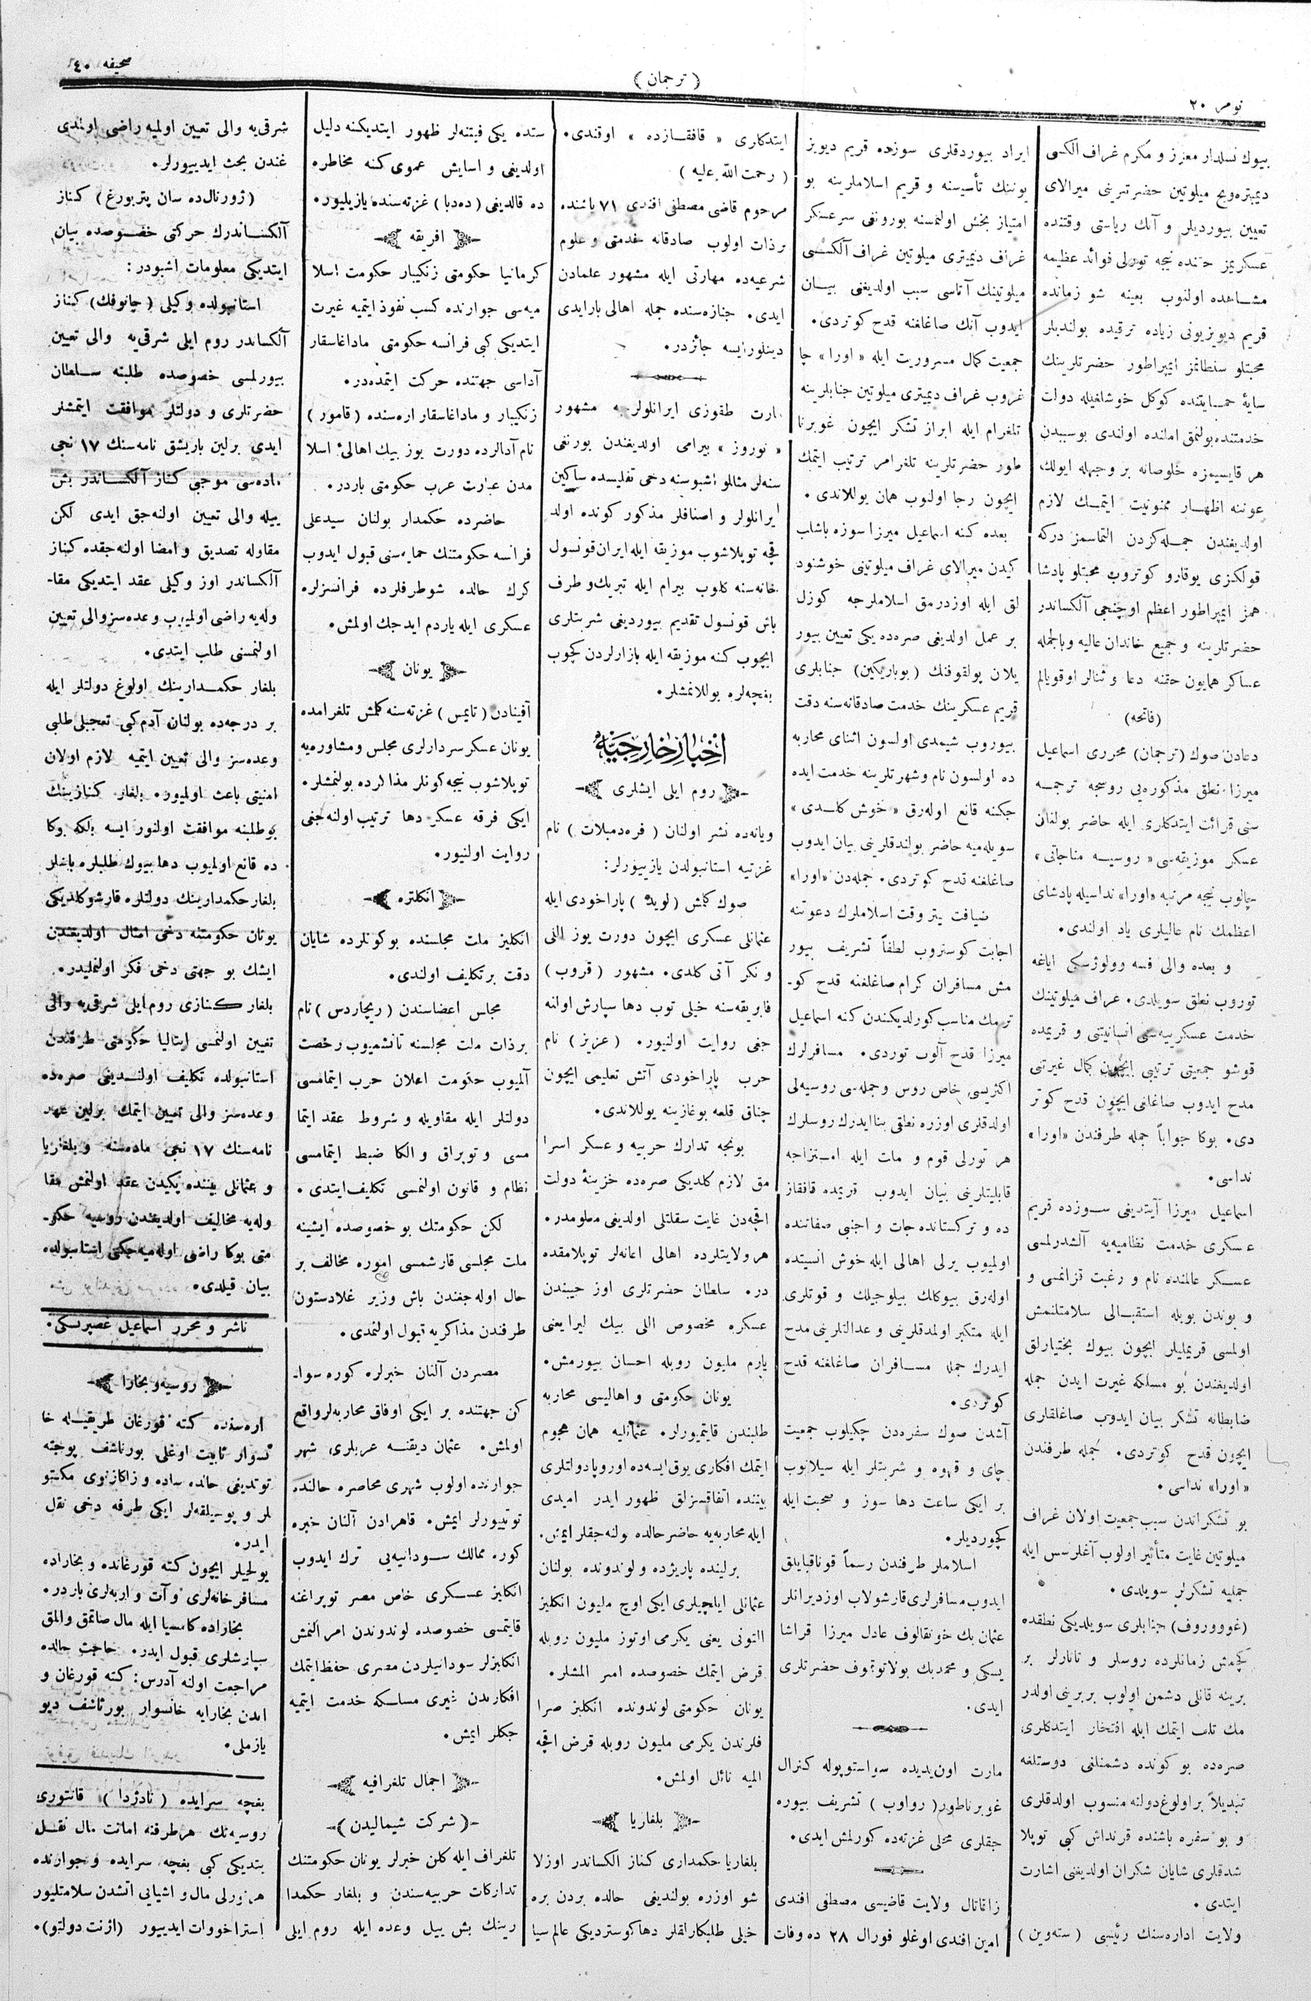 نومر ٢٠
( ترجمان )
صحيفه ٤٠
بيوك نسلدار معزز و مكرم غراف الكسى
ديميتره ويچ ميلوتين حضرتلرينى ميرالاى
تعيين بيورديلر و آنك رياستى وقتنده
عسكريمز حقنده نيجه تورلى فوائد عظيمه
مشاهده اولنوب بعينه شو زمانده
قريم ديويزيونى زياده ترقيده بولندىلر
محبتلو سلطانمز ايمپراطور حضرتلرينك
سايهٔ حمايتنده كوكل خوشلغيله دولت
خدمتنده بولنمق امانده اولندى بوسببدن
هر قايسيمزه خلوصانه بر وجهله ايولك
عوننه اظهار ممنونيت ايتمك لازم
اولديغندن جمله كزدن التماسمز دركه
قولكزى يوقارو كوتروب محبتلو پادشا
همز ايمپراطور اعظم اوچنجى آلكساندر
حضرتلرينه و جميع خاندان عاليه و بالجمله
عساكر همايون حقنه دعا و ثنالر اوقويالم
(فاتحه)
دعادن صوك (ترجمان) محررى اسماعيل
ميرزا نطق مذكوره‌يى روسجه ترجمه
سنى قرائت ايتدكلرى ايله حاضر بولنان
عسكر موزيقه‌سى «روسيه مناجاتى»
چالوب نيجه مرتبه «اورا» نداسيله پادشاى
اعظمك نام عاليلرى ياد اولندى.
و بعده والى قسه رولوژسكى اياغه
توروب نطق سويلدى. غراف ميلوتينك
خدمت عسكريه‌سى انسانيتنى و قريمده
قوشو جمعيتى ترتيبى ايچون كمال غيرتنى
مدح ايدوب صاغلغى ايچون قدح كوتر
دى. بوكا جواباً جمله طرفندن «اورا»
نداسى.
اسماعيل ميرزا آيتديغى سوزده قريم
عسكرى خدمت نظاميه‌يه آلشدرلمسى
عسكر عالمنده نام و رغبت قزانمسى و
و بوندن بويله استقبالى سلامتلنمش
اولمسى قريمليلر ايچون بيوك بختيارلق
اولديغندن بو مسلكه غيرت ايدن جمله
ضابطانه تشكر بيان ايدوب صاغلقلرى
ايچون قدح كوتردى. جمله طرفندن
«اورا» نداسى.
بو تشكراندن سبب جمعيت اولان غراف
ميلوتين غايت متأثير اولوب آغلرسس ايله
جمله‌يه تشكرلر سويلدى.
(غووروف) جنابلرى سويلديكى نطقده
كچمش زمانلرده روسلر و تاتارلر بر
برينه قانلى دشمن اولوب بربرينى اولدر
مك تلف ايتمك ايله افتخار ايتدكلرى
صره‌ده بو كونده دشمنلغى دوستلغه
تبديلاً بر اولوغ دولته منسوب اولدقلرى
و بو سفره باشنده قرنداش كبى توپلا
شدقلرى شايان شكران اولديغنى اشارت
ايتدى.
ولايت اداره‌سنك رئيسى (سته‌وين)
ايراد بيوردقلرى سوزده قريم ديويز
يوننك تأسيسنه و قريم اسلاملرينه بو
امتياز بخش اولنمسنه بورونغى سرعسكر
غراف ديميترى ميلوتين غراف آلكسى
ميلوتينك آتاسى سبب اولديغنى بيان
ايدوب آنك صاغلغنه قدح كوتردى.
جمعيت كمال مسروريت ايله «اورا» چا
غروب غراف ديميترى ميلوتين جنابلرينه
تلغرام ايله ابراز تشكر ايچون غوبرنا
طور حضرتلرينه تلغرامر ترتيب ايتمك
ايچون رجا اولنوب همان يوللاندى.
بعده كنه اسماعيل ميرزا سوزه باشلب
كيدن ميرالاى غراف ميلوتينى خوشنود
لق ايله اوزدرمق اسلاملرجه كوزل
بر عمل اولديغى صره‌ده يكى تعيين بيور
يلان پولقوفنك (بوبازيكين) جنابلرى
قريم عسكرينك خدمت صادقانه‌سنه دقت
بيوروب شيمدى اولسون اثناى محاربه
ده اولسون نام وشهرتلرينه خدمت ايده
جكنه قانع اوله‌رق «خوش كلدى»
سويله‌ميه حاضر بولندقلرينى بيان ايدوب
صاغلغنه قدح كوتردى. جمله‌دن «اورا»
ضيافت يتر وقت اسلاملرك دعوتنه
اجابت كوستروب لطفاً تشريف بيور
مش مسافران كرام صاغلغنه قدح كو-
ترمك مناسب كورلديكندن كنه اسماعيل
ميرزا قدح آلوب توردى. مسافرلرك
اكثريسى خاص روس وجمله‌سى روسيه‌لى
اولدقلرى اوزره نطقى بناايدرك روسلرك
هر تورلى قوم و ملت ايله امتزاجه
قابليتلرينى بيان ايدوب قريمده قافقاز
ده و تركستانده جات و اجنبى صفاتنده
اولميوب يرلى اهالى ايله خوش انسيتده
اوله‌رق بيوكلك بيلوجيلك و قوتلرى
ايله متكبر اولمدقلرينى و عدالتلرينى مدح
ايدرك جمله مسافران صاغلغنه قدح
كوتردى.
آشدن صوك سفره‌دن چكيلوب جمعيت
چاى و قهوه و شربتلر ايله سيلانوب
بر ايكى ساعت دها سوز و صحبت ايله
كچورديلر.
اسلاملر طرفندن رسماً قوناقبايلق
ايدوب مسافرلرى قارشولاب اوزديرانلر
عثمان بك خونقالوف عادل ميرزا قراشا
يسكى و محمدبك بولاتوقوف حضرتلرى
ايدى.
مارت اون‌يديده سواستوپوله كنرال
غوبرناطور (رواوب) تشريف بيوره
جقلرى محلى غزته‌ده كورلمش ايدى.
زاقاتال ولايت قاضيسى مصطفى افندى
امين افندى اوغلو فورال ٢٨ ده وفات
ايتدكلرى «قافقازده» اوقندى.
(رحمت الله عليه)
مرحوم قاضى مصطفى افندى ٧١ ياشنده
برذات اولوب صادقانه خدمتى وعلوم
شرعيه‌ده مهارتى ايله مشهور علمادن
ايدى. جنازه‌سنده جمله اهالى بارايدى
دينلورايسه جائزدر.
مارت طقوزى ايرانلولرجه مشهور
«نوروز» بيرامى اولديغندن بورنغى
سنه‌لر مثاللو اشبوسنه دخى تفليسده ساكين
ايرانلولر و اصنافلر مذكور كونده اولد
قچه توپلاشوب موزيقه ايله ايران قونسول
خانه‌سنه كلوب بيرام ايله تبريك و طرف
باش قونسول تقديم بيورديغى شربتلرى
ايچوب كنه موزيقه ايله بازارلردن كچوب
بغچه‌لره يوللانمشلر.
اخبار خارجيه
روم ايلى ايشلرى
ويانه‌ده نشر اولنان (فره‌دمبلات) نام
غزتيه استانبولدن يازيورلر:
صوك كلمش (لويد) پاراخودى ايله
عثمانلى عسكرى ايچون دورت يوز اللى
و نكر آتى كلدى. مشهور (قروب)
فابريقه‌سنه خيلى توب دها سپارش اولنه
جغى روايت اولنيور. (عزيز) نام
حرب پاراخودى آتش تعليمى ايچون
جناق قلعه بوغازينه يوللاندى.
بونجه تدارك حربيه و عسكر اسرا
مق لازم كلديكى صره‌ده خزينهٔ دولت
اقچه‌دن غايت سقلتلى اولديغى معلومدر.
هر ولايتلرده اهالى اعانه‌لر توپلامقده
در. سلطان حضرتلرى اوز جيبندن
عسكره مخصوص اللى بيك ليرا يعنى
يارم مليون روبله احسان بيورمش.
يونان حكومتى و اهاليسى محاربه
طلبندن قايتميورلر. عثمانليه همان هجوم
ايتمك افكارى يوق ايسه‌ده اوروپادولتلرى
بيننده اتفاقسزلق ظهور ايدر اميدى
ايله محاربه‌يه حاضر حالده بولنه‌جقلر ايمش.
برلينده پاريژده و لوندونده بولنان
عثمانلى ايلچيلرى ايكى اوچ مليون انكليز
التونى يعنى يكرمى اوتوز مليون روبله
قرض ايتمك خصوصده امر المشلر.
يونان حكومتى لوندونده انكليز صرا
فلرندن يكرمى مليون روبله قرض اقچه
الميه نائل اولمش.
بلغاريا
بلغاريا حكمدارى كناز الكساندر اوزلا
شو اوزره بولنديغى حالده بردن بره
خيلى طلبكارلقلر دها كوسترديكى عالم سيا
ستده يكى فتنه‌لر ظهور ايتديكنه دليل
اولديغى و اسايش عموى كنه مخاطره
ده قالديغى (ده‌دبا) غزته‌سنده يازيليور.
افريقه
كرمانيا حكومتى زنكبار حكومت اسلا
ميه‌سى جوارنده كسب نفوذ ايتميه غيرت
ايتديكى كبى فرانسه حكومتى ماداغاسقار
آداسى جهتنده حركت ايتمده‌در.
زنكبار و ماداغاسقار اره‌سنده (قامور)
نام آدالرده دورت يوز بيك اهالئ اسلا
مدن عبارت عرب حكومتى باردر.
حاضرده حكمدار بولنان سيدعلى
فرانسه حكومتنك حمايه‌سنى قبول ايدوب
كرك حالده شوطرفلرده فرانسزلره
عسكرى ايله ياردم ايدجك اولمش.
يونان
آفينادن (تايمس) غزته‌سنه كلمش تلغرامده
يونان عسكر سردارلرى مجلس ومشاوره‌يه
توپلاشوب نيجه كونلر مذاكرده بولنمشلر.
ايكى فرقه عسكر دها ترتيب اولنه‌جغى
روايت اولنيور.
انكلتره
انكليز ملت مجلسنده بوكونلرده شايان
دقت برتكليف اولندى.
مجلس اعضاسندن (ريچاردس) نام
برذات ملت مجلسنه تانشميوب رخصت
آلميوب حكومت اعلان حرب ايتمامسى
دولتلر ايله مقاوله و شروط عقد ايتما
مسى و توپراق و الكا ضبط ايتمامسى
نظام و قانون اولنمسى تكليف ايتدى.
لكن حكومتك بو خصوصده ايشينه
ملت مجلسى قارشمسى اموره مخالف بر
حال اوله‌جغندن باش وزير غلادستون
طرفندن مذاكريه قبول اولنمدى.
مصردن آلنان خبرلره كوره سوا-
كن جهتنده بر ايكى اوفاق محاربه‌لر واقع
اولمش. عثمان ديقنه عربلرى شهر
جوارنده اولوب شهرى محاصره حالنده
توتييورلر ايمش. قاهرادن آلنان خبره
كوره ممالك سودانيه‌يى ترك ايدوب
انكليز عسكرى خاص مصر توپراغنه
قايتمسى خصوصده لوندوندن امر النمش
انكليزلر سودانيلردن مصرى حفظ ايتمك
افكارندن غيرى مسلكه خدمت ايتميه
جكلر ايمش.
اجمال تلغرافيه
(شركت شماليدن)
تلغراف ايله كلن خبرلر يونان حكومتنك
تداركات حربيه‌سندن و بلغار حكمدا
رينك بش ييل وعده ايله روم ايلى
شرقيه والى تعيين اولميه راضى اولمدى
غندن بحث ايديورلر.
(ژورنال‌ده سان پتربورغ) كناز
آلكساندرك حركتى خصوصده بيان
ايتديكى معلومات اشبودر:
استانبولده وكيلى (چانوفك) كناز
آلكساندر روم ايلى شرقيه والى تعيين
بيورلمسى خصوصده طلبنه سلطان
حضرتلرى و دولتلر موافقت ايتمشلر
ايدى برلين باريشق نامه‌سنك ١٧ نجى
ماده‌سى موجبى كناز آلكساندر بش
ييله والى تعيين اولنه‌جق ايدى لكن
مقاوله تصديق و امضا اولنه‌جقده كناز
آلكساندر اوز وكيلى عقد ايتديكى مقا-
وله‌يه راضى اولميوب وعده‌سز والى تعيين
اولنمسنى طلب ايتدى.
بلغار حكمدارينك اولوغ دولتلر ايله
بر درجه‌ده بولنان آدم كبى تعجبلى طلبى
وعده‌سز والى تعيين ايتميه لازم اولان
امنيتى باعث اولميور. بلغار كنازينك
بوطلبنه موافقت اولنور ايسه بلكه بوكا
ده قانع اولميوب دها بيوك طلبلره باشلر
بلغار حكمدارينك دولتلره قارشو كلديكى
يونان حكومتنه دخى امثال اولديغندن
ايشك بو جهتى دخى فكر اولنمليدر.
بلغار كنازى روم ايلى شرقيه والى
تعيين اولنمسى ايتاليا حكومتى طرفندن
استانبولده تكليف اولنديغى صره‌ده
وعده‌سز والى تعيين ايتمك برلين عهد
نامه‌سنك ١٧ نجى ماده‌سنه و بلغاريا
و عثمانلى بيننده يكيدن عقد اولنمش مقا
وله‌يه مخاليف اولديغندن روسيه حكو-
متى بوكا راضى اوله‌ميه‌جكنى استانبولده
بيان قيلدى.
ناشر و محرر اسماعيل غصپرنسكى.
روسيه و بخارا
اره‌سنده كته قورغان طريقيله خا
نسوار ثابت اوغلى بورناشف پوچته
توتديغى حالده ساده و زاكازنوى مكتو
بلر و پوسيلقه‌لر ايكى طرفه دخى نقل
ايدر.
يولجيلر ايچون كته قورغانده و بخاراده
مسافرخانه‌لرى و آت و اربه‌لرى باردر.
بخاراده كاميسيا ايله مال صاتمق والمق
سپارشلرى قبول ايدر. حاجت حالده
مراجعت اولنه آدرس: كته قورغان و
اندن بخارايه خانسوار بورناشف ديو
يازملى.
بغچه سرايده (نادژدا) قانتورى
روسيه‌نك هر طرفنه امانت مال نقل
ايتديكى كبى بغچه سرايده و جوارنده
هر تورلى مال و اشيايى اتشدن سلامتليور
استراخووات ايدييور (اژنت دولتو).